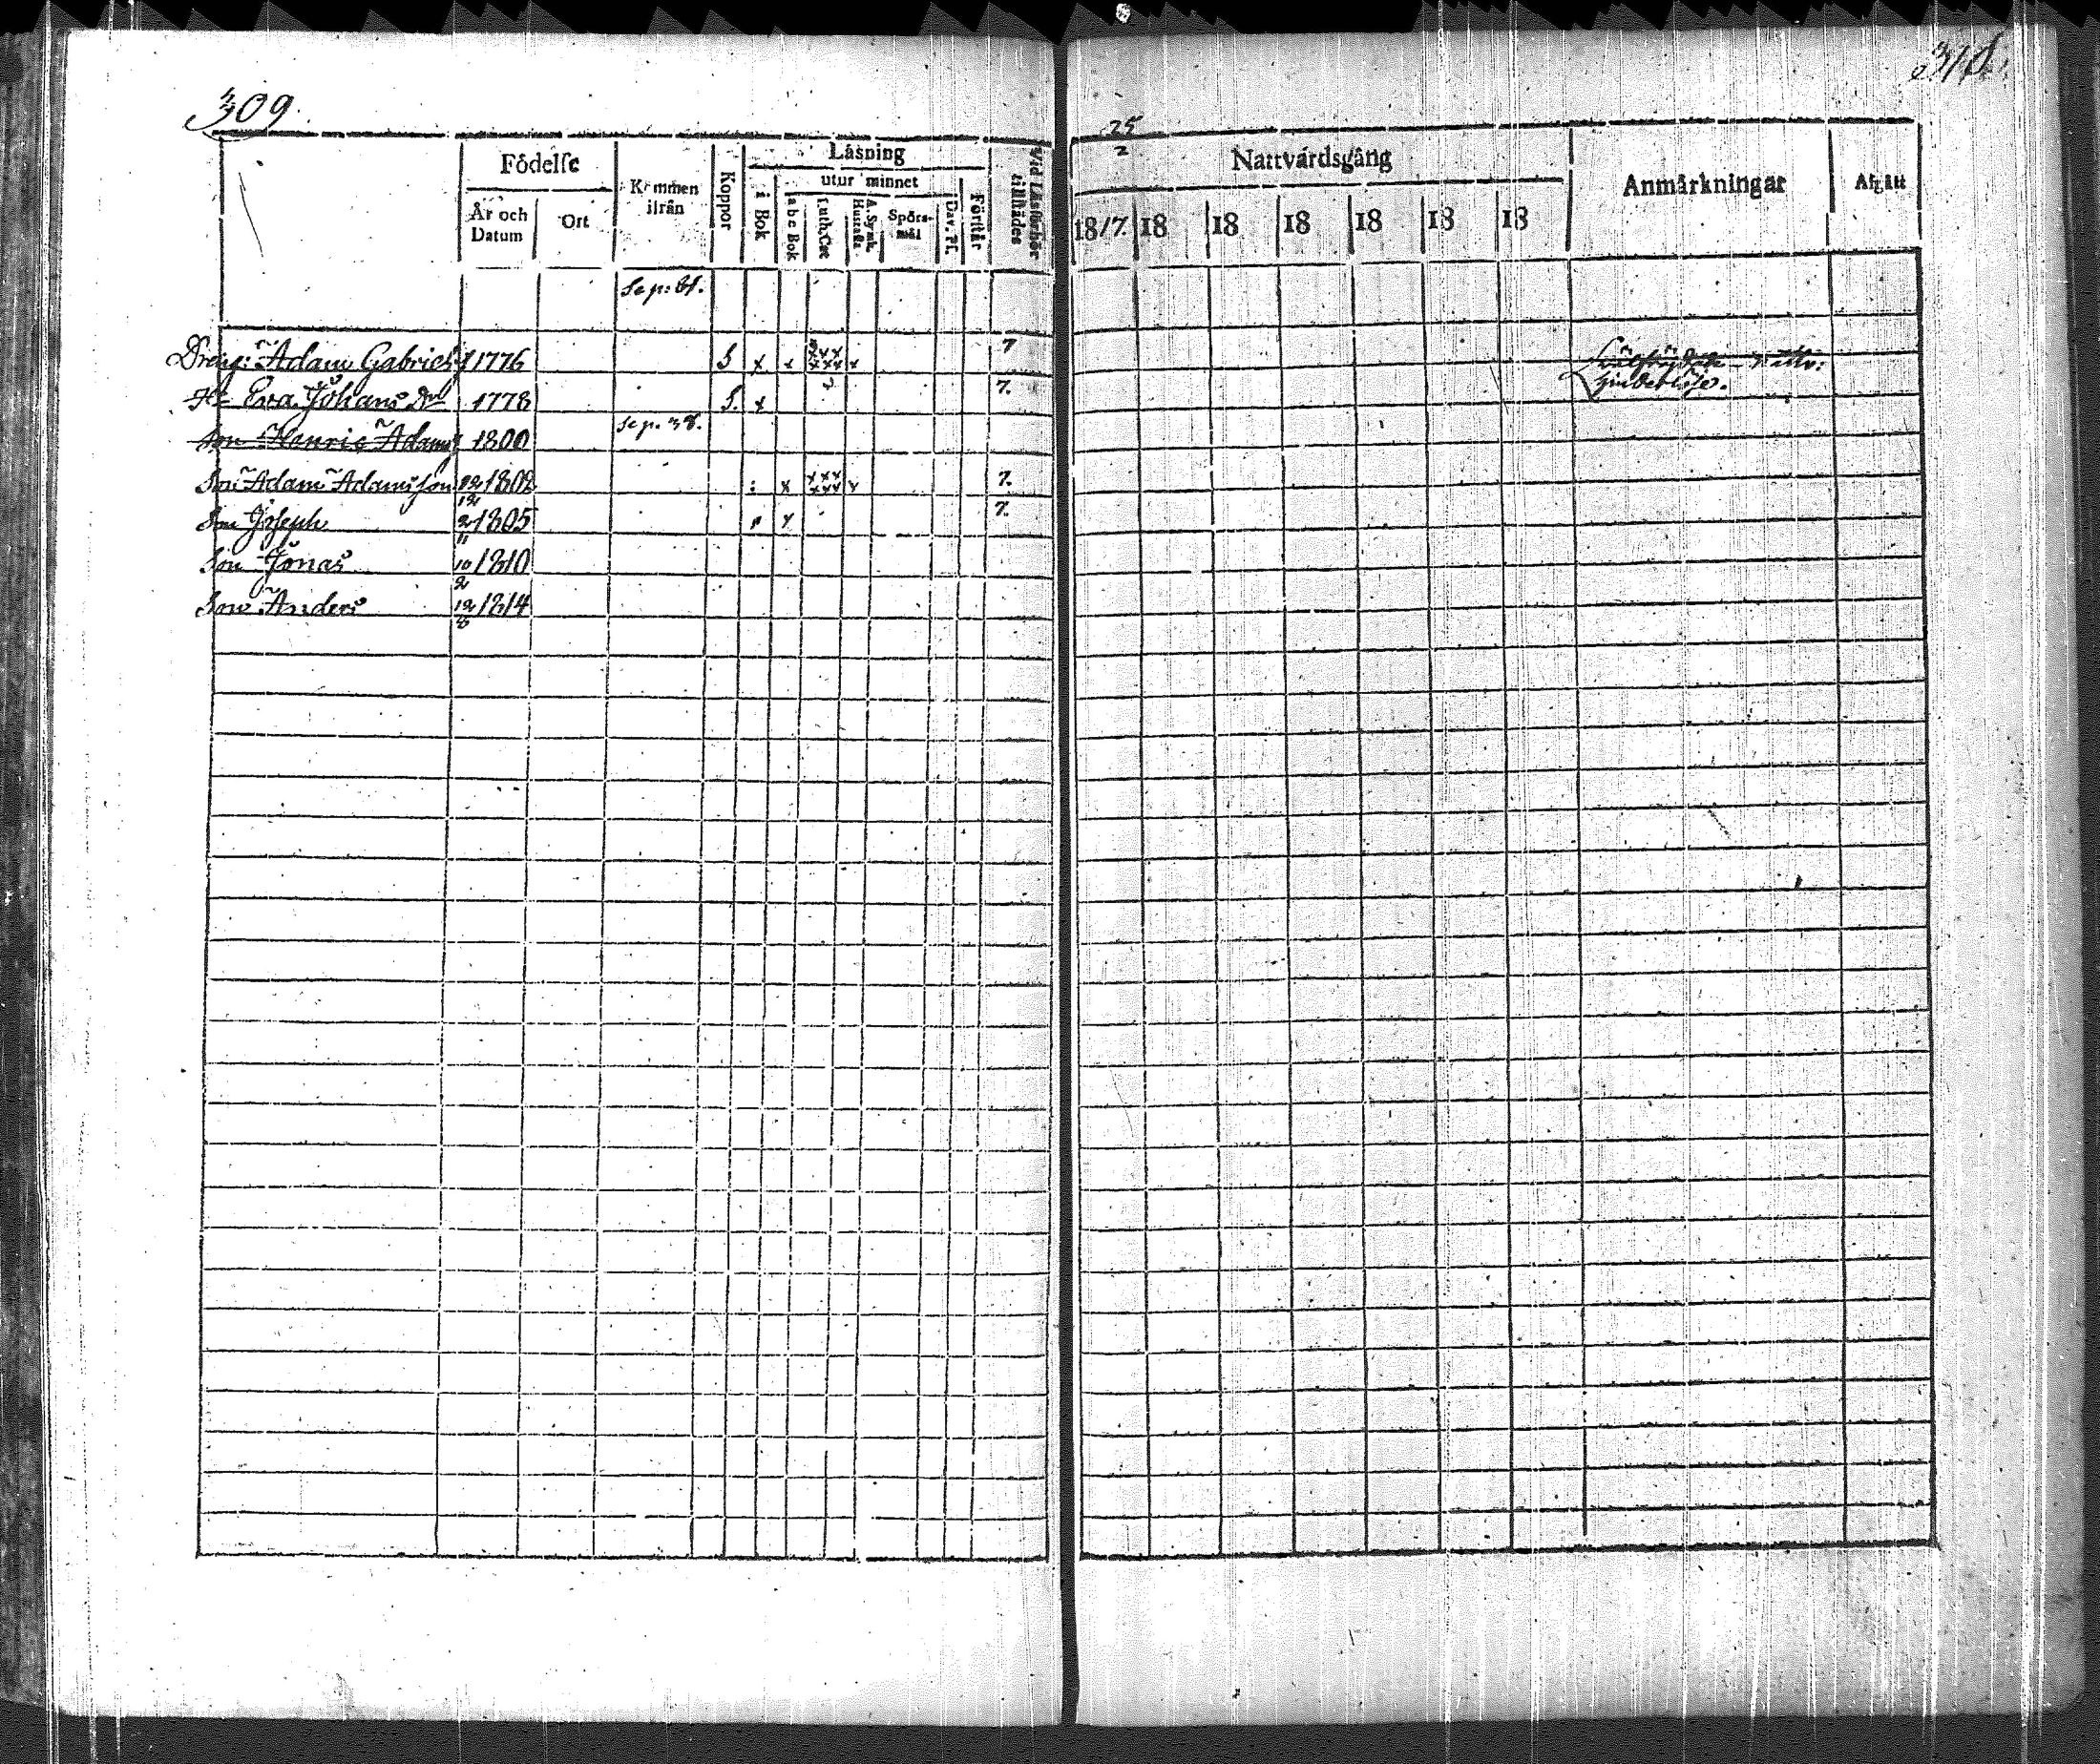 309.
310.
Födelse
Kommen ifrån
Koppor
Läsning
utur minnet
År och Datum
Ort
i Bok
a b c Bok
Luth. Cat
A. Symb. Hustafla
Spörsmål
Dav. Ps.
Förstår
Vid Läsförhör tillstädes
25
2
Nattvårdsgång
Anmärkningar
Afgått
1817. 18 18 18 18 18 18
Sep: 31.
Dreng: Adam Gabriels 1776 S x x xxx xxx x 7
H: Eva Johans Dr 1778 S. x 7.
Son Henric Adams 1800 Sep. 38.
Son Adam Adamsson 12/12 1802 : x xxx xxx x 7.
Son Joseph 2/11 1805 x 7.
Son Jonas 10/2 1810
Son Anders 12/8 1814